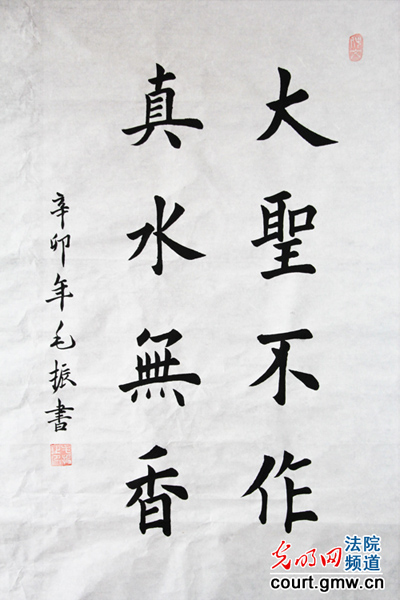 大聖不作
真水無香
辛卯年毛振書
光明网
法院
频道
court.gmw.cn